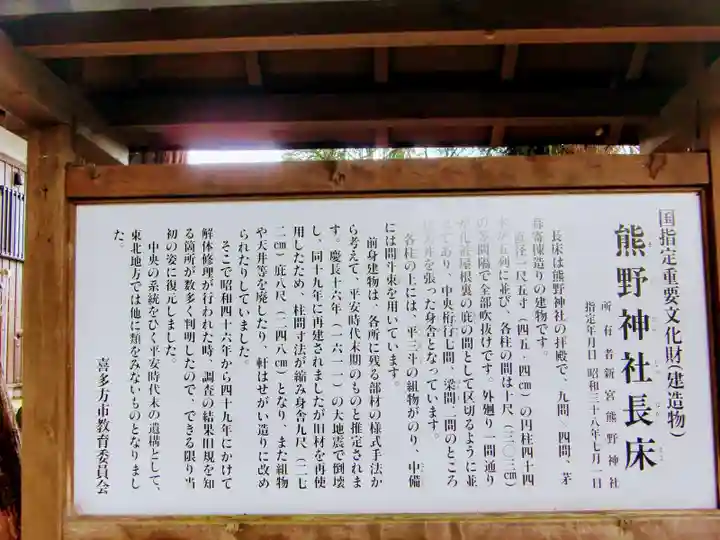 国指定重要文化財(建造物)
熊野神社長床
所有者 新宮熊野神社
指定年月日 昭和三十八年七月一日
長床は熊野神社の拝殿で、九間×四間、茅
葺寄棟造りの建物です。
直径一尺五寸(四五・四㎝)の円柱四十四
本が五列に並び、各柱の間は十尺(三〇三㎝)
の等間隔で全部吹抜けです。外廻り一間通り
が化粧屋根裏の庇の間として区切るように並
えてあり、中央桁行七間、梁間二間のところ
天井を張った身舎となっています。
各柱の上には、平三斗の組物がのり、中備
には間斗束を用いています。
前身建物は、各所に残る部材の様式手法か
ら考えて、平安時代末期のものと推定されま
す。慶長十六年(一六一一)の大地震で倒壊
し、同十九年に再建されましたが旧材を再使
用したため、柱間寸法が縮み身舎九尺(二七
二㎝)庇八尺(二四八㎝)となり、また組物
や天井等を廃したり、軒はせがい造りに改め
られたりしていました。
そこで昭和四十六年から四十九年にかけて
解体修理が行われた時、調査の結果旧規を知
る箇所が数多く判明したので、できる限り当
初の姿に復元しました。
中央の系統をひく平安時代末の遺構として、
東北地方では他に類をみないものとなりまし
た。
喜多方市教育委員会